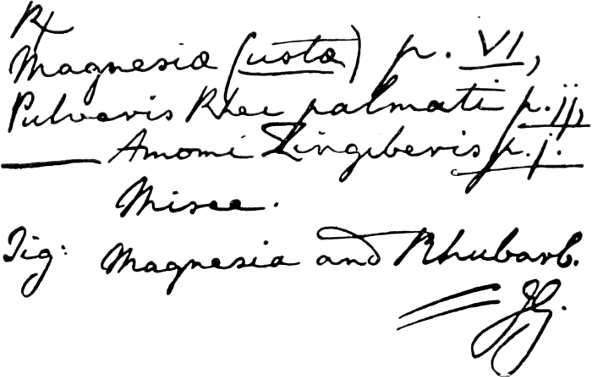 ℞
Magnesiæ (ustæ) p. VI,
Pulveris Rhei palmati p. ij,
——— Amomi Zingiberis p. j.
Misce.
Sig: Magnesia and Rhubarb.
JG.